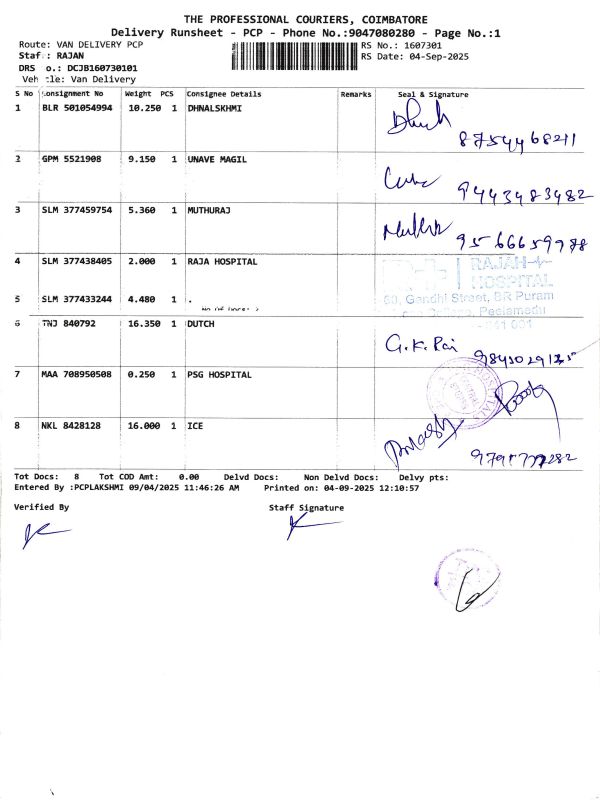 THE PROFESSIONAL COURIERS, COIMBATORE
Delivery Runsheet - PCP - Phone No.:9047080280 - Page No.:1
Route: VAN DELIVERY PCP RS No.: 1607301
Staf : RAJAN RS Date: 04-Sep-2025
DRS o.: DCJB160730101
Veh cle: Van Delivery
S No Consignment No Weight PCS Consignee Details Remarks Seal & Signature
1 BLR 501054994 10.250 1 DHNALSKHMI
8754468211
2 GPM 5521908 9.150 1 UNAVE MAGIL
9443483482
3 SLM 377459754 5.360 1 MUTHURAJ
9566659978
4 SLM 377438405 2.000 1 RAJA HOSPITAL
RAJAH
HOSPITAL
5 SLM 377433244 4.480 1 .
60, Gandhi Street, BR Puram
Peelamedu
6 TNJ 840792 16.350 1 DUTCH
G.K. Rai
7 MAA 708950508 0.250 1 PSG HOSPITAL
8 NKL 8428128 16.000 1 ICE
Tot Docs: 8 Tot COD Amt: 0.00 Delvd Docs: Non Delvd Docs: Delvy pts:
Entered By :PCPLAKSHMI 09/04/2025 11:46:26 AM Printed on: 04-09-2025 12:10:57
Verified By Staff Signature